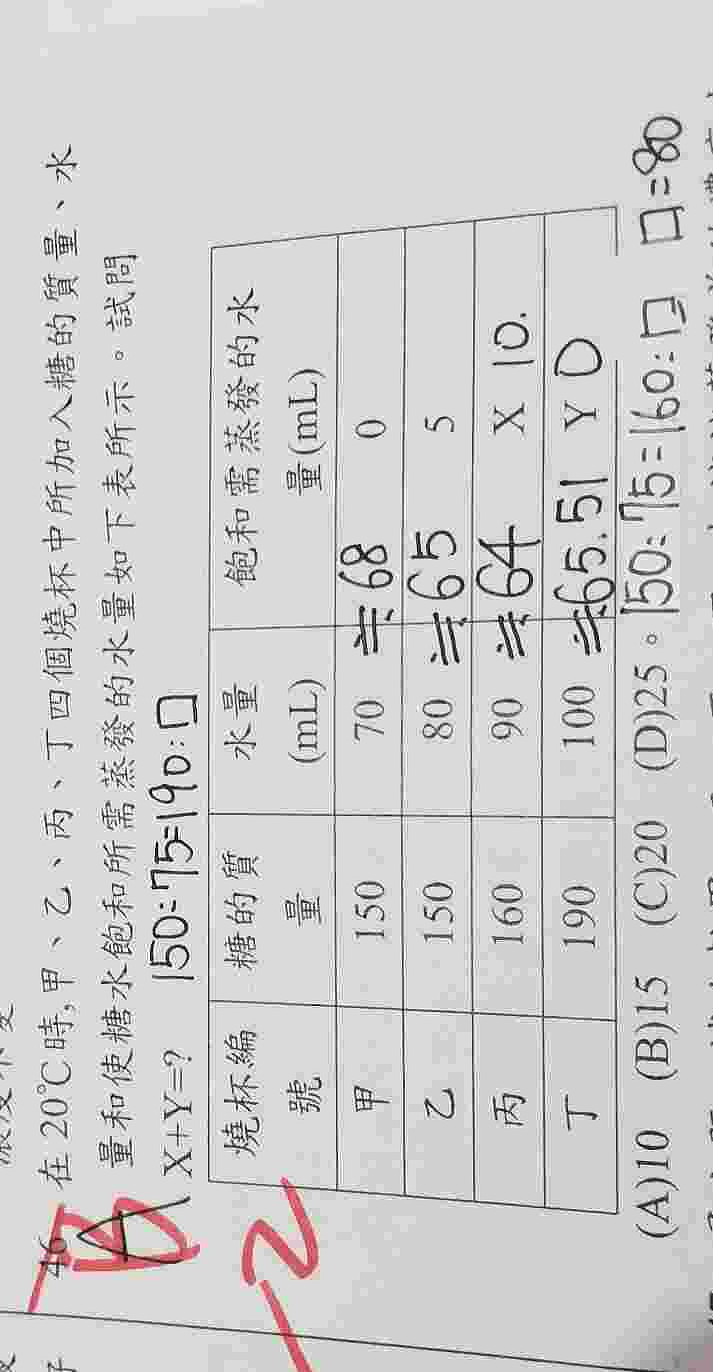 46
在20℃時,甲、乙、丙、丁四個燒杯中所加入糖的質量、水
量和使糖水飽和所需蒸發的水量如下表所示。試問
X+Y=? 150:75=190:□
A
-2
燒杯編號 糖的質量 水量(mL) 飽和需蒸發的水量(mL)
甲 150 70 ≒68 0
乙 150 80 ≒65 5
丙 160 90 ≒64 X 10.
丁 190 100 ≒65.51 Y 0
(A)10 (B)15 (C)20 (D)25。150:75=160:□ □=80